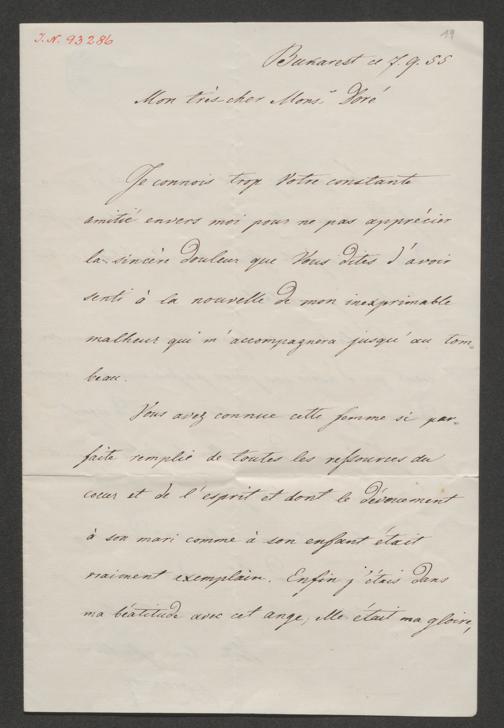 I.N. 93286
19
Bukarest ce 7.9.55
Mon très cher Monsr Doré
Je connois trop Votre constante
amitié envers moi pour ne pas apprécier
la sincère douleur que Vous dites d'avoir
senti à la nouvelle de mon inexprimable
malheur qui m'accompagnera jusqu'au tom-
beau.
Vous avez connue cette femme si par-
faite remplie de toutes les ressources du
coeur et de l'esprit et dont le dévouement
à son mari comme à son enfant était
vraiment exemplair. Enfin j'étais dans
ma béatitude avec cet ange, elle était ma gloire,